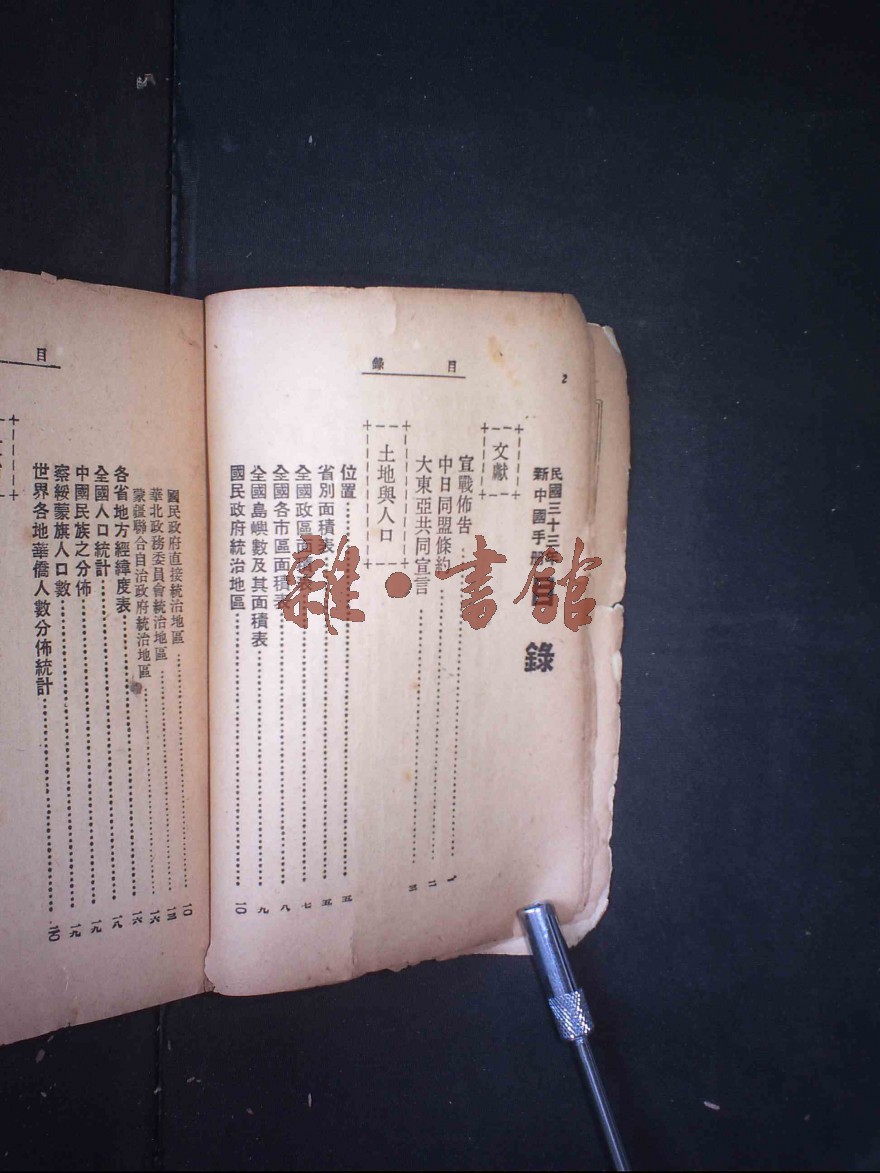 目錄
2
民國三十三年
新中國手册 目錄
文獻
宣戰佈告……一
中日同盟條約……二
大東亞共同宣言……三
土地與人口
位置……五
省別面積表……五
全國政區面積……七
全國各市區面積表……八
全國島嶼數及其面積表……九
國民政府統治地區……一〇
目
國民政府直接統治地區……一〇
華北政務委員會統治地區……一三
蒙疆聯合自治政府統治地區……一六
各省地方經緯度表……一六
全國人口統計……一八
中國民族之分佈……一九
察綏蒙旗人口數……一九
世界各地華僑人數分佈統計……二〇
雜·書館